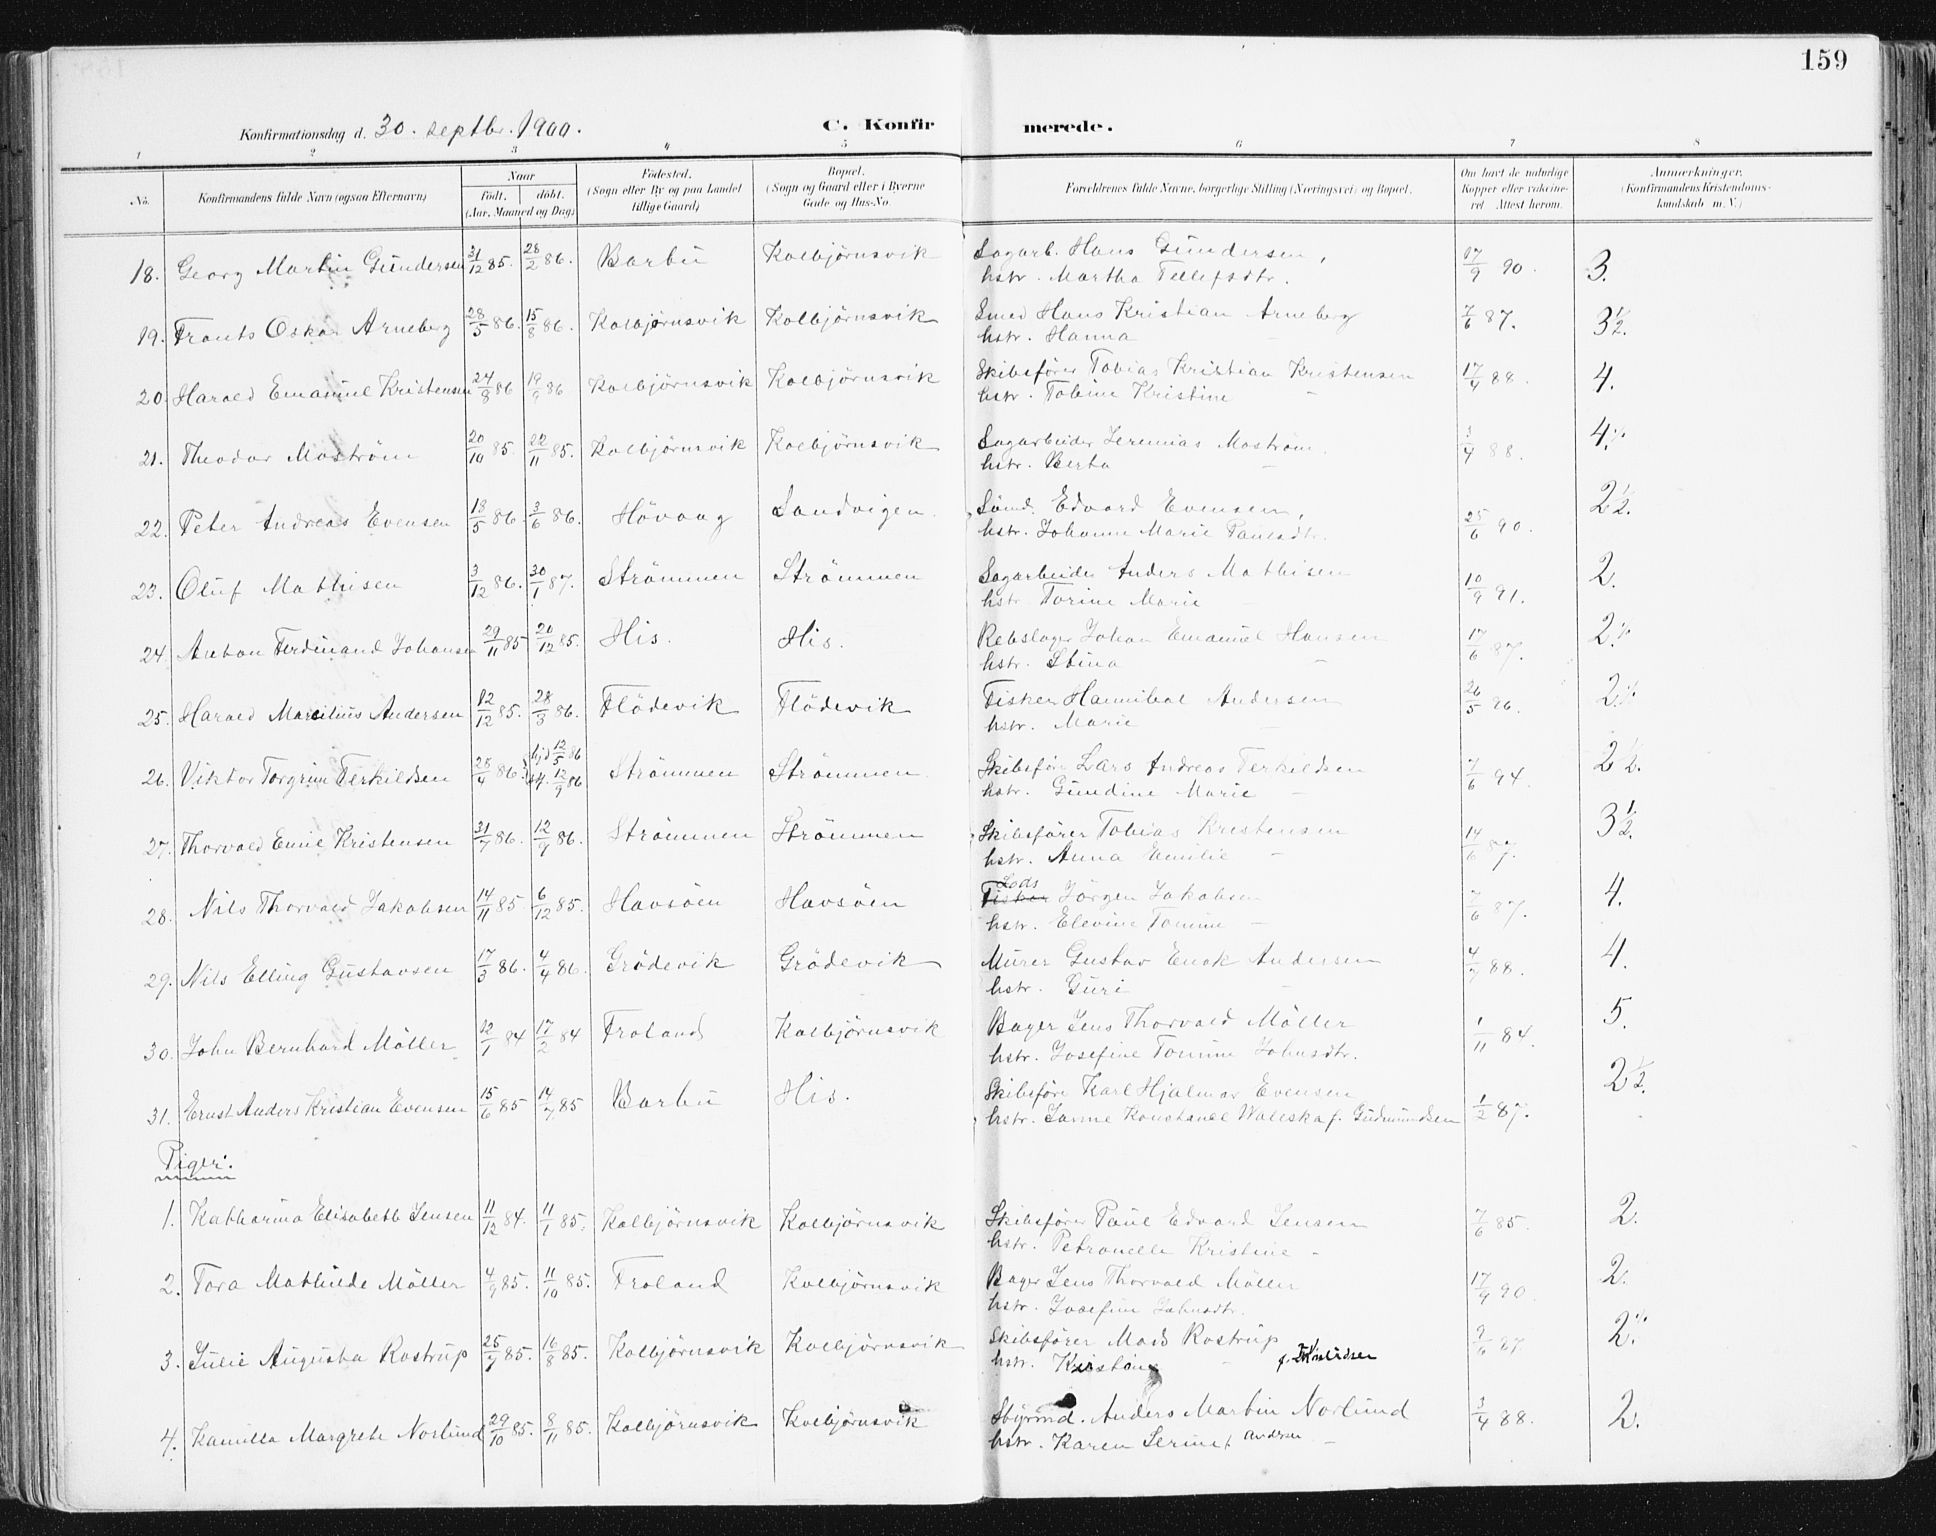 159
Konfirmationsdag d. 30. septbr. 1900. C. Konfirmerede.
1 2 3 4 5 6 7 8
No. Konfirmandens fulde Navn (ogsaa Efternavn) Naar födt. döbt. (Aar, Maaned og Dag) Födested. (Sogn eller By og paa Landet tillige Gaard) Bopæl. (Sogn og Gaard eller i Byerne Gade og Hus-No. Forældrenes fulde Navne, borgerlige Stilling (Næringsvei) og Bopæl. Om havt de naturlige Kopper eller vaccineret Attest herom. Anmærkninger. (Konfirmandens Kristendomskundskab m. V.)
18. Georg Martin Gundersen 31/12 85. 28/2 86. Barbu Kolbjörnsvik Sagarb. Hans Gundersen, 17/9 90. 3.
hstr. Martha Tellefsdtr.
19. Frants Oskar Arneberg 28/5 86. 15/8 86. Kolbjörnsvik Kolbjörnsvik Smed Hans Kristian Arneberg 7/6 87. 3 1/2.
hstr. Hanna —
20. Harald Emanuel Kristensen 24/8 86 19/9 86 Kolbjörnsvik Kolbjörnsvik Skibsfører Tobias Kristian Kristensen 17/4 88. 4.
hstr. Tobine Kristine —
21. Theodor Moström 20/10 85. 22/11 85. Kolbjörnsvik Kolbjörnsvik Sagarbeider Jeremias Moström. 3/4 88. 4.
hstr. Berta —
22. Peter Andreas Evensen 18/5 86. 3/6 86. Hövaag Sandvigen. Sömd. Edvard Evensen, 25/6 90. 2 1/2.
hstr. Johanne Marie Paulsdtr.
23. Oluf Mathisen 3/12 86. 30/1 87. Strömmen Strömmen Sagarbeider Anders Mathisen 10/9 91. 2.
hstr. Torine Marie —
24. Anton Ferdinand Johansen 29/11 85 20/12 85. His. His. Rebslager Johan Emanuel Hansen 17/6 87. 2.
hstr. Stina —
25. Harald Marcilius Andersen 12/12 85. 28/3 86. Flödevik Flödevik Fisker Hannibal Andersen 26/5 86. 2.
hstr. Marie —
26. Viktor Torgrim Terkildsen 25/4 86. hjd 12/5 86 st. 12/9 86 Strömmen Strömmen Skibsför. Lars Andreas Terkildsen 7/6 94. 2 1/2.
hstr. Gundine Marie —
27. Thorvald Emil Kristensen 31/7 86. 12/9 86. Strömmen Strömmen Skibsfører Tobias Kristensen 14/6 87. 3 1/2.
hstr. Anna Emilie —
28. Nils Thorvald Jakobsen 14/11 85. 6/12 85. Havsöen Havsöen Fisker Lods Jörgen Jakobsen 7/6 87. 4.
hstr. Elevine Tomine —
29. Nils Elling Gustavsen 17/3 86. 4/4 86. Grödevik Grödevik Murer Gustav Enok Andersen 88. 4.
hstr. Guri —
30. John Bernhard Möller. 12/1 84 17/2 84 Froland Kolbjörnsvik Bager Jens Thorvald Möller 1/11 84. 5.
hstr. Josefine Tomine Johnsdtr.
31. Ernst Anders Kristian Evensen 15/6 85 14/7 85 Barbu His. Skibsföre Karl Hjalmar Evensen 1/2 87. 2 1/2.
hstr. Janne Konstanse Waleska f. Gudmundsen
Piger.
1. Katharina Elisabeth Jensen 11/12 84. 11/1 85. Kolbjörnsvik Kolbjörnsvik Skibsfører Paul Edvard Jensen 7/6 85. 2.
hstr. Petronelle Kristine —
2. Tora Mathilde Möller 4/9 85. 11/10 85. Froland Kolbjörnsvik Bager Jens Thorvald Möller 17/9 90. 2.
hstr. Josefine Johnsdtr.
3. Julie Augusta Rostrup 25/7 85. 16/8 85. Kolbjörnsvik Kolbjörnsvik Skibsfører Mads Rostrup 87. 2.
hstr. Kirstine —
4. Kamilla Margrete Norlund 29/10 85. 8/11 85. Kolbjörnsvik Kolbjörnsvik Styrmd. Anders Martin Norlund 3/4 88. 2.
hstr. Karen Serine f. Andrsen —